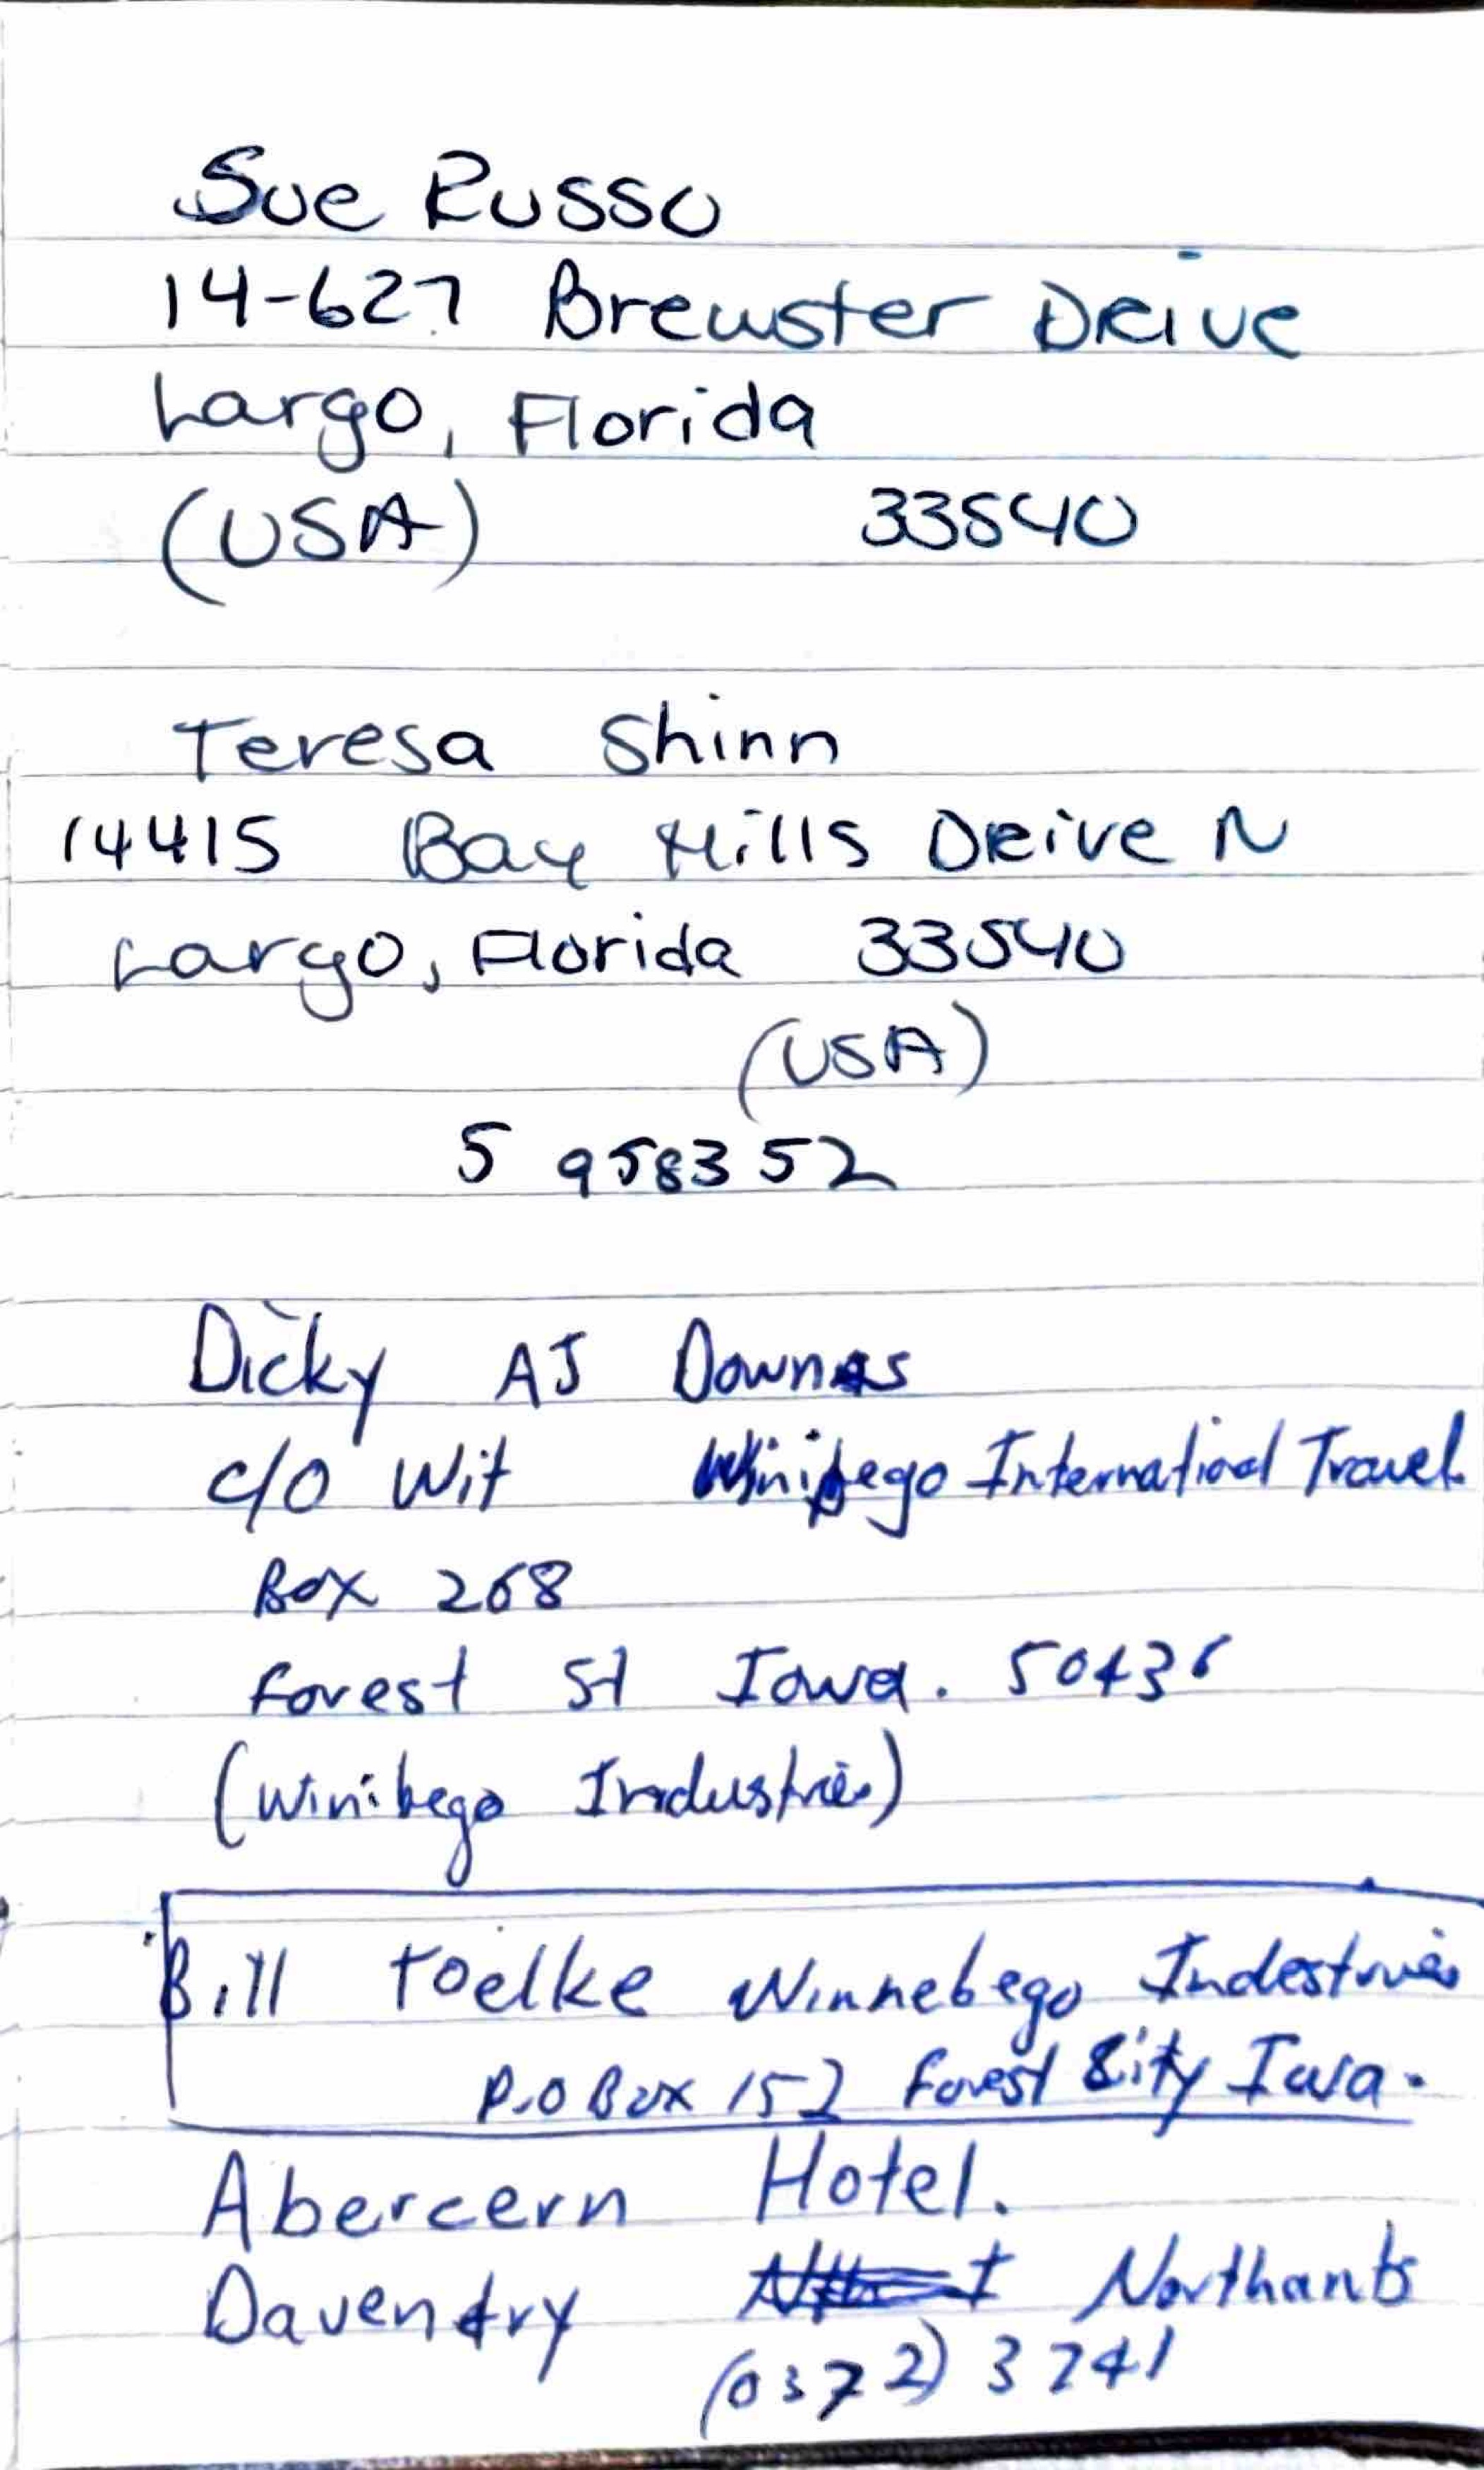 Sue Russo
14-627 Brewster Drive
Largo, Florida
(USA) 33540
Teresa Shinn
14415 Bay Hills Drive N
Largo, Florida 33540
(USA)
5 958352
Dicky AJ Downes
c/o Wit Winibego International Travel
Box 268
Forest St Iowa. 50436
(Winibego Industries)
Bill Toelke Winnebego Indestries
P.O Box 152 Forest City Iwa.
Abercern Hotel.
Daventry Northants
(0372) 3741